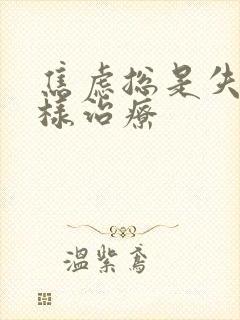 焦虑总是失
样治疗
温紫鸢